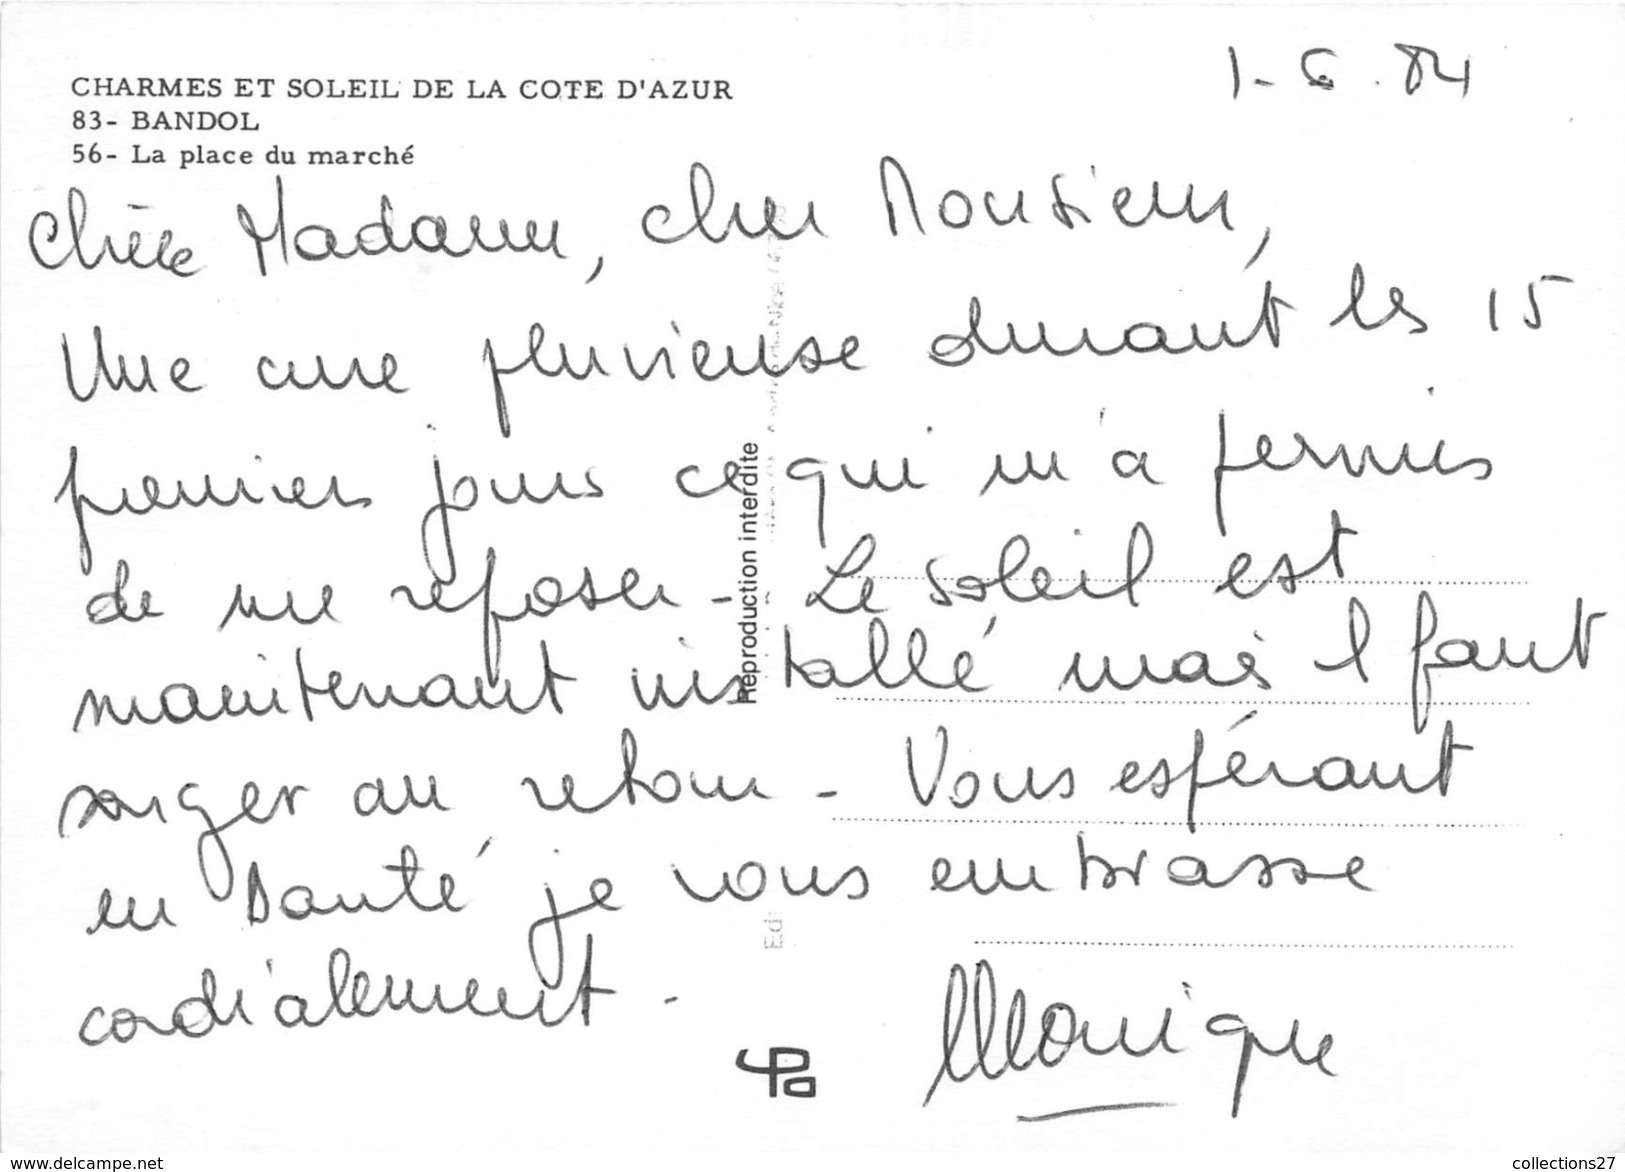 CHARMES ET SOLEIL DE LA COTE D'AZUR
83- BANDOL
56- La place du marché
1-6.84
Chère Madame, cher Monsieur,
Une cure pluvieuse durant les 15
premiers jours ce qui m'a permis
de me reposer - Le soleil est
maintenant installé mais il faut
songer au retour - Vous espérant
en santé je vous embrasse
cordialement -
Monique
Reproduction interdite
Ed
collections27
www.delcampe.net